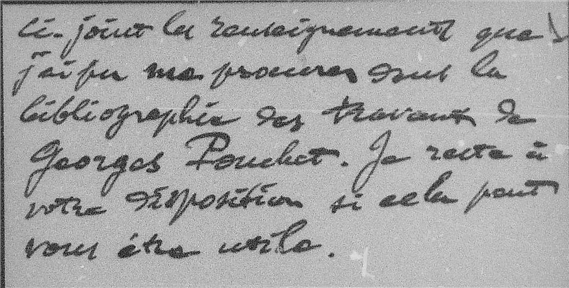 Ci-joint les renseignements que
j'ai pu me procurer sur la
bibliographie des travaux de
Georges Pouchet. Je reste à
votre disposition si cela peut
vous être utile.